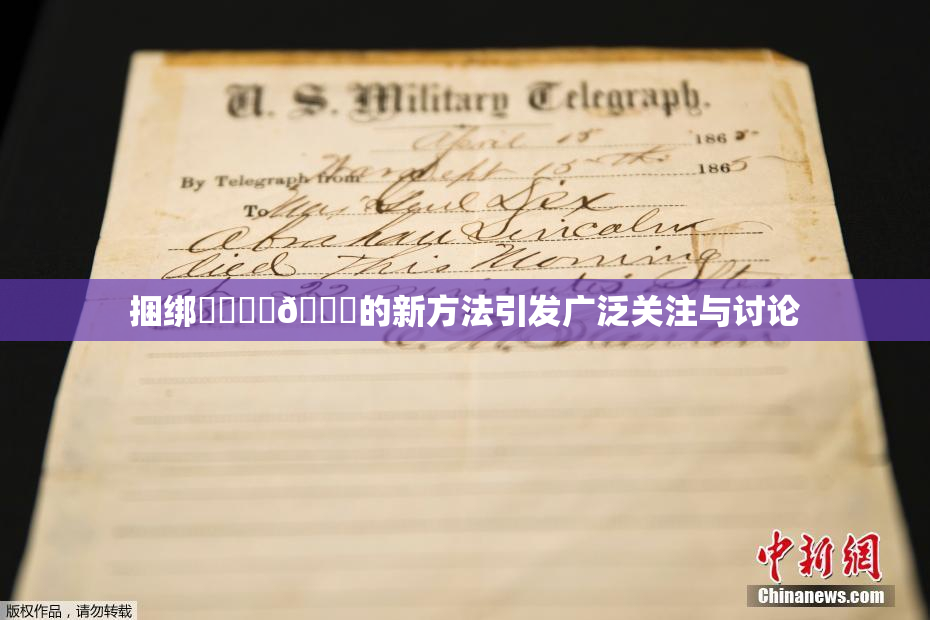 U. S. Military Telegraph.
April 15 1865
By Telegraph from War Dept 15th 1865
To Maj Genl Dix
Abraham Lincoln
died This Morning
at 22 minutes after
捆绑的新方法引发广泛关注与讨论
E. M. Stanton
中新网
Chinanews.com
版权作品，请勿转载